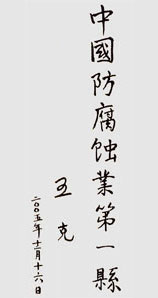 中國防腐蝕業第一縣
王克
二〇〇五年十二月十六日